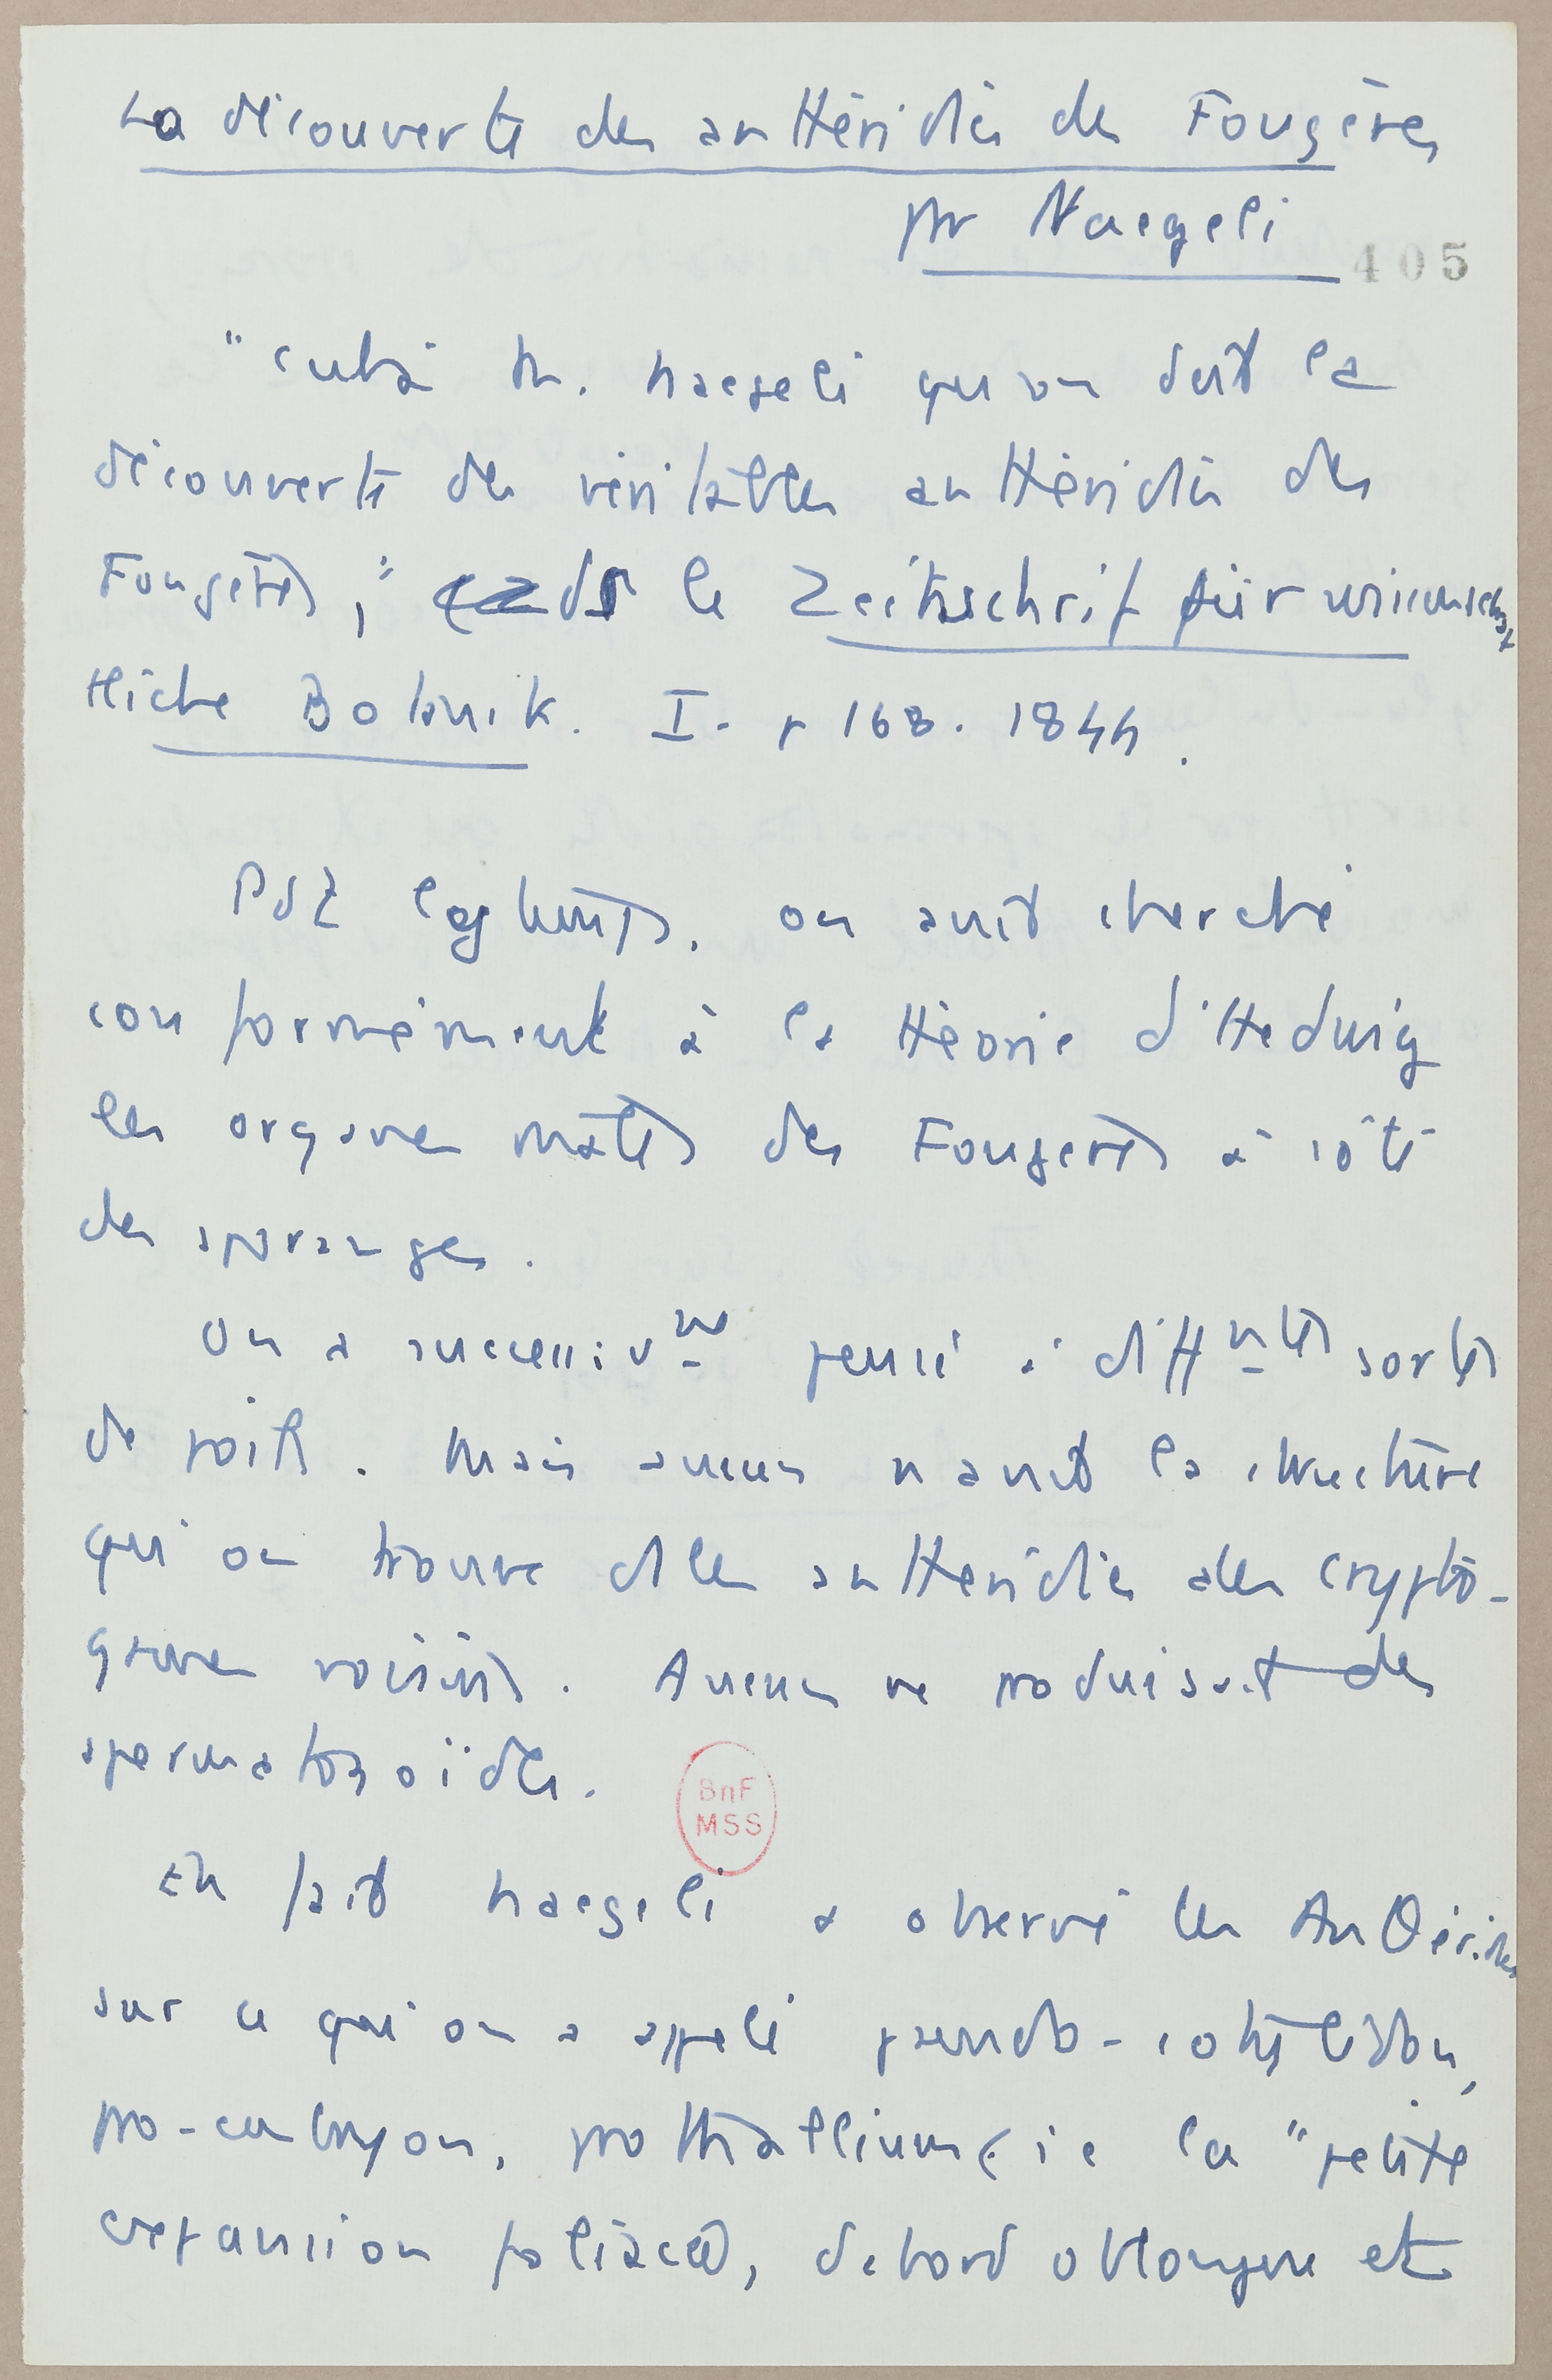 La découverte des anthéridies des Fougères
par Naegeli
405
"C'est à M. Naegeli qu'on doit la
découverte des véritables anthéridies des
Fougères," ds le Zeitschrift für wissenschaf
tliche Botanik. I. p 168. 1844.
Pdt lgtemps, on avait cherché
conformément à la théorie d'Hedwig
les organes mâles des Fougères à côté
des sporanges.
On a successivmt pensé à difffntes sortes
de poils. Mais aucun n'avait la structure
qu'on trouve ds les anthéridies des crypto-
games voisins. Aucun ne produisait des
spermatozoïdes.
BnF
MSS
En fait Naegeli a observé les Anθéridies
sur ce qu'on a appelé pseudo-cotylédon,
pro-embryon, prothallium (ie la "petite
expansion foliacée, d'abord oblongue et